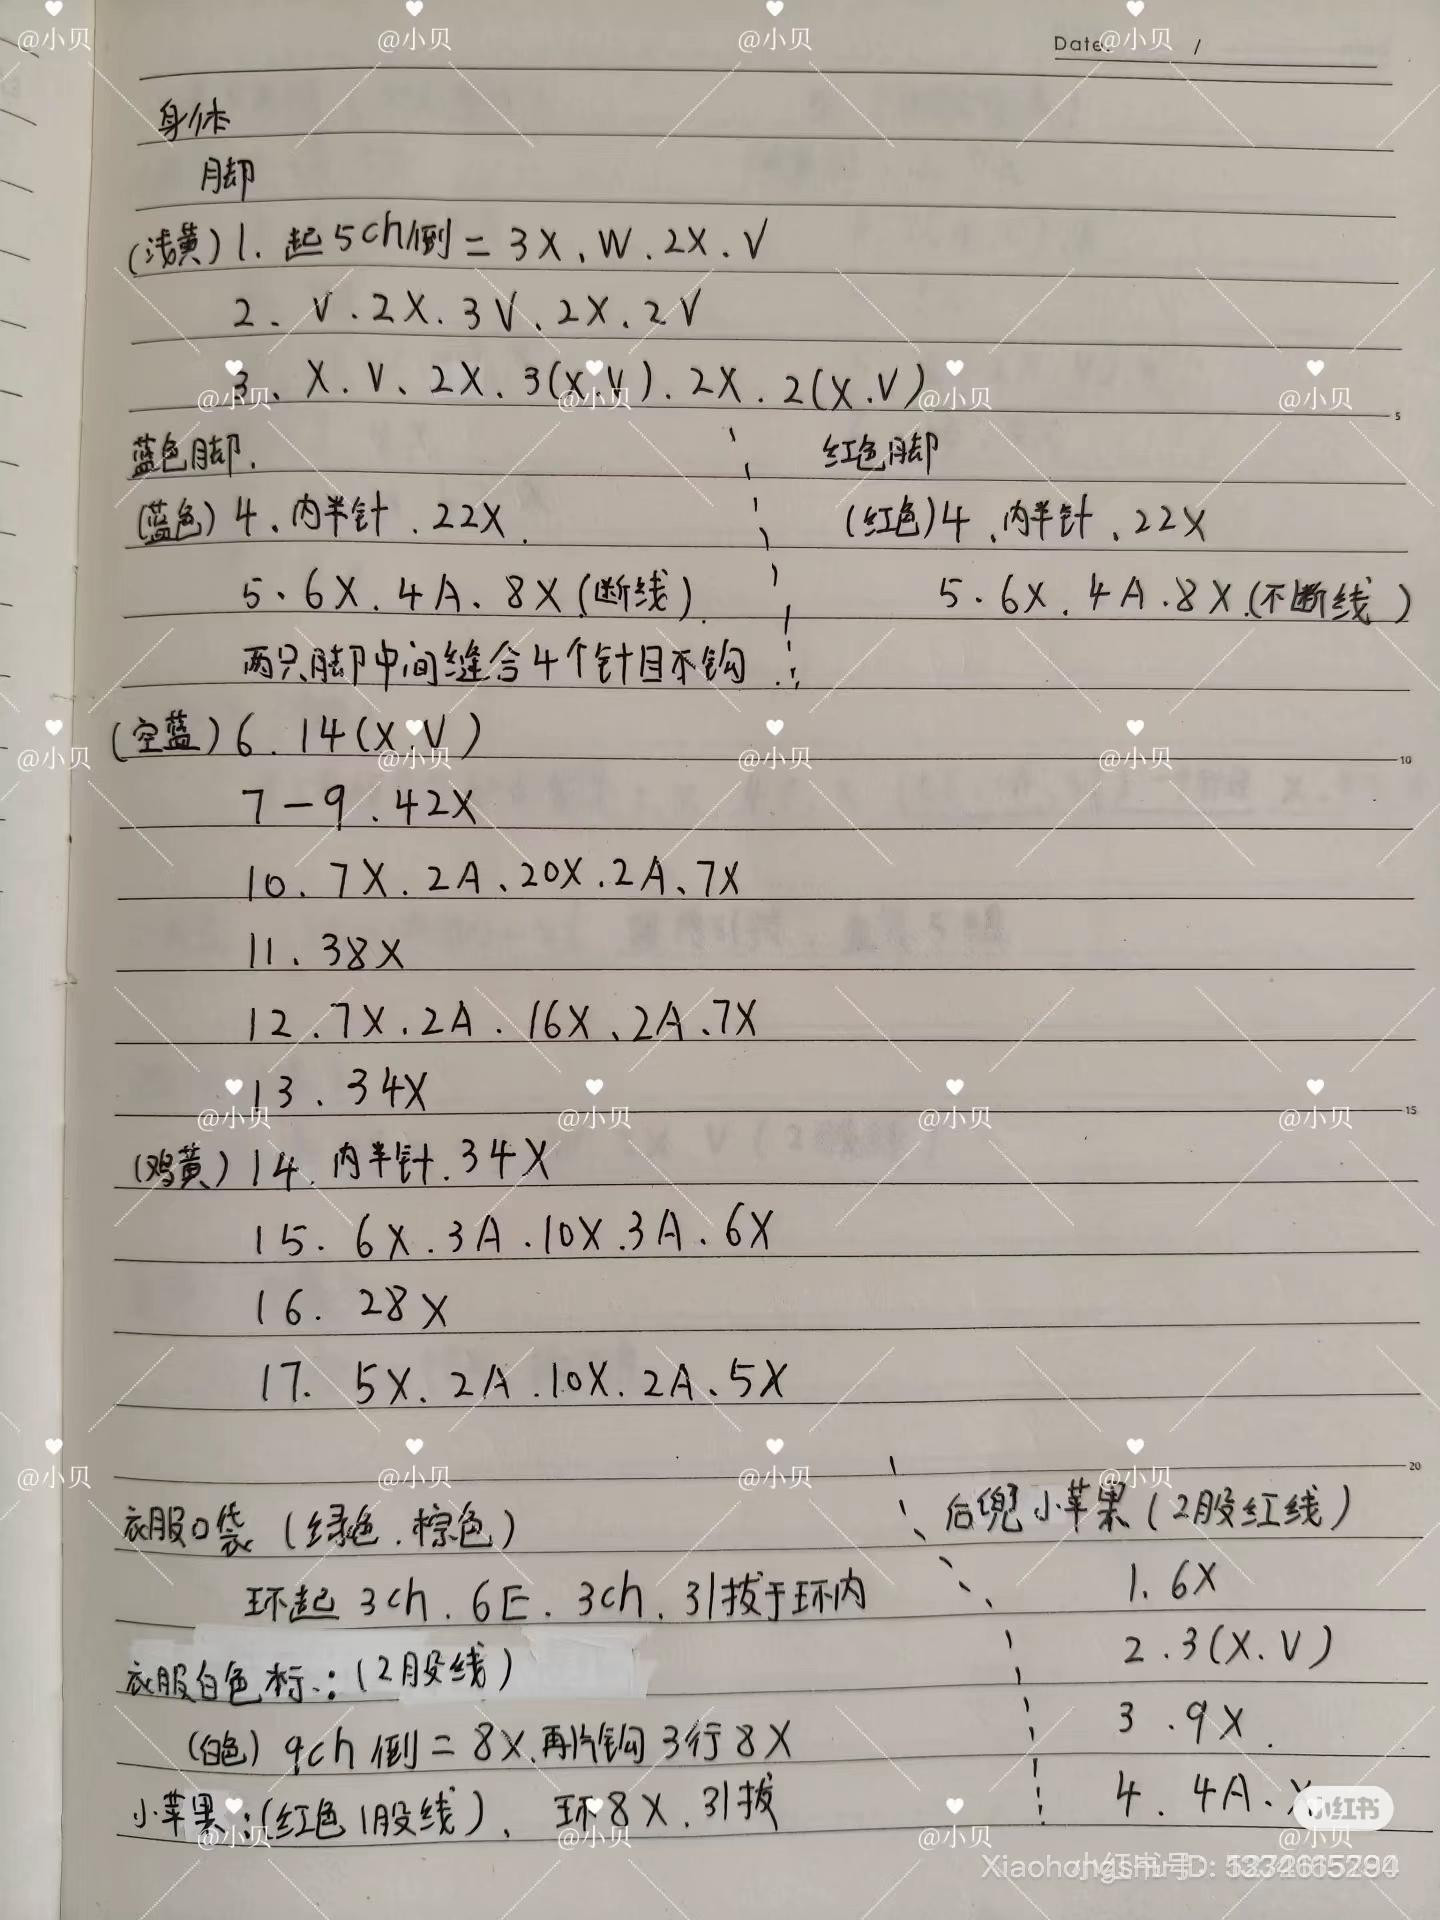 Date: /
身体
脚
(浅黄) 1. 起5ch倒二 3X、W、2X、V
2、V、2X、3V、2X、2V
3、X、V、2X、3(X、V)、2X、2(X、V)
蓝色脚、
(蓝色) 4、内半针、22X
5、6X、4A、8X(断线)
两只脚中间缝合4个针目不钩
红色脚
(红色)4、内半针、22X
5、6X、4A、8X(不断线)
(空蓝) 6、14(X、V)
7-9、42X
10、7X、2A、20X、2A、7X
11、38X
12、7X、2A、16X、2A、7X
13、34X
(鸡黄) 14、内半针、34X
15、6X、3A、10X、3A、6X
16、28X
17、5X、2A、10X、2A、5X
衣服口袋 (绿色、棕色)
环起3ch、6E、3ch、引拔于环内
衣服白色标:(2股线)
(白色) 9ch倒二8X、再片钩3行8X
小苹果:(红色1股线)、环8X、引拔
后兜小苹果(2股红线)
1、6X
2、3(X、V)
3、9X
4、4A、X
小红书
@小贝